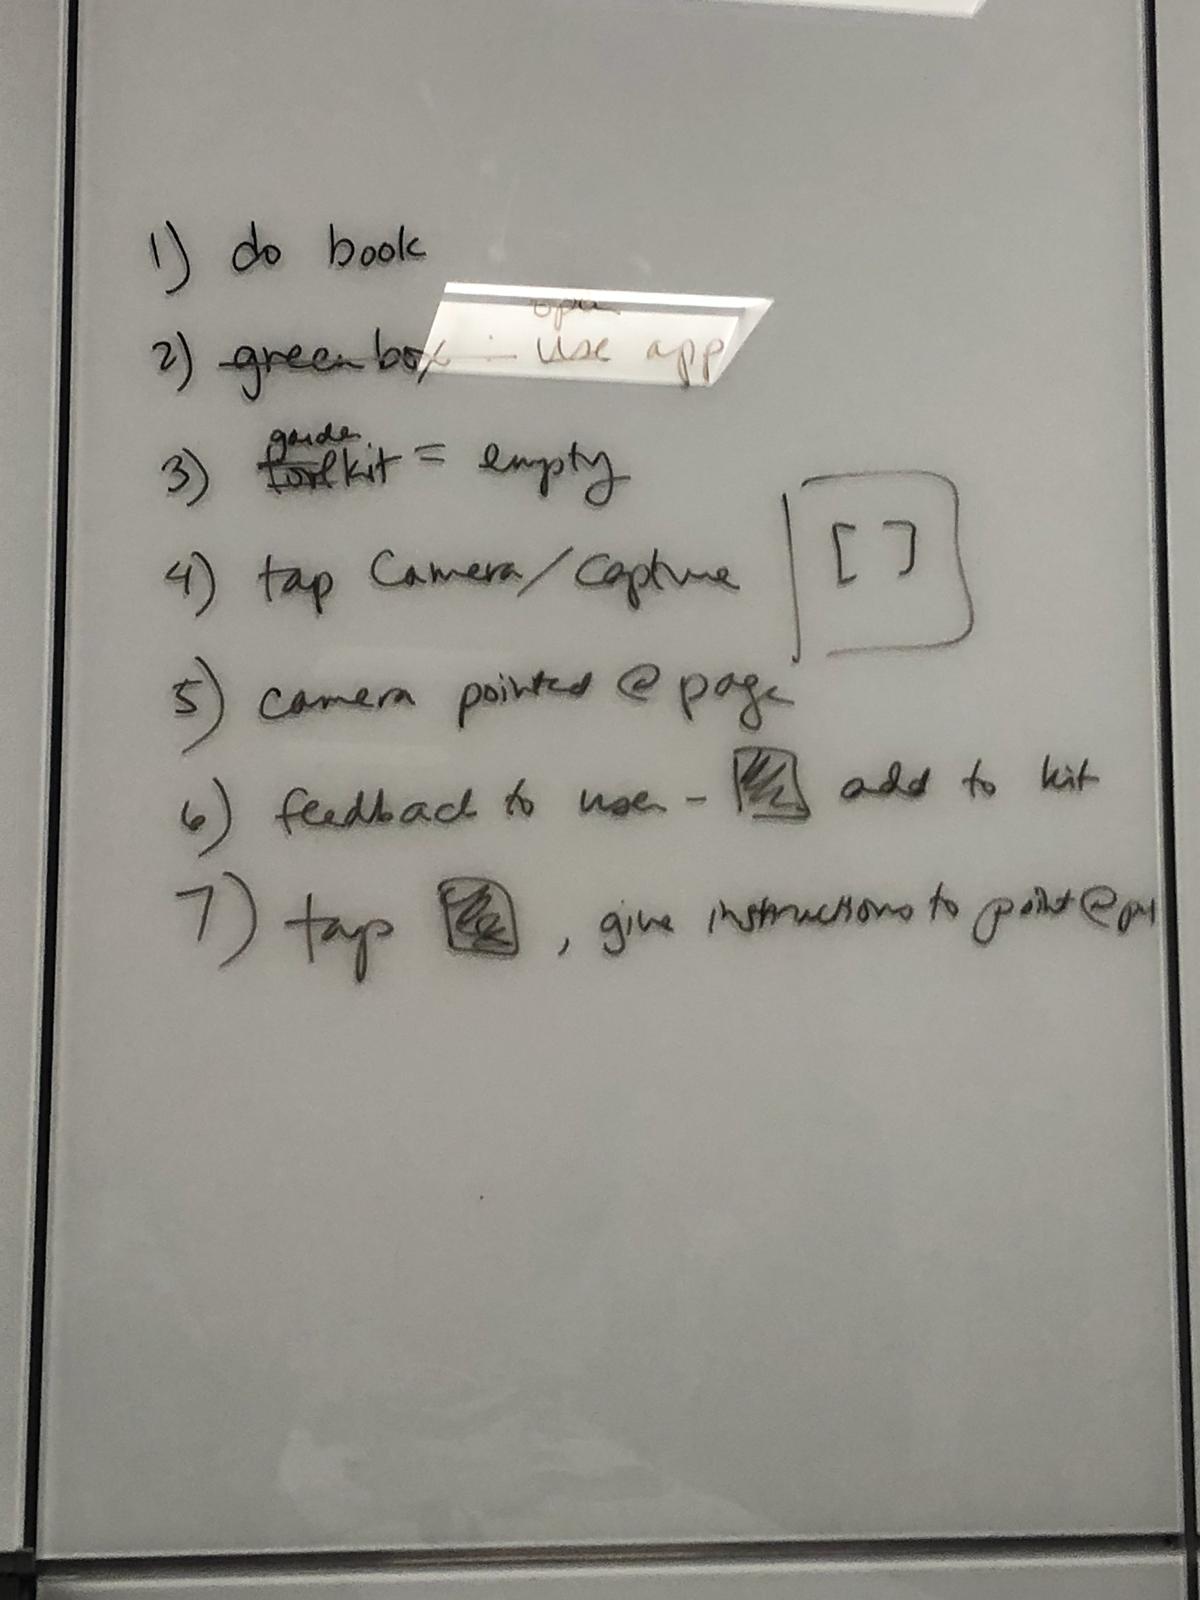 1) do book
open
2) green box - use app
guide
3) toolkit = empty
4) tap Camera/Capture [ ]
5) camera pointed @ page
6) feedback to user - add to kit
7) tap , give instructions to point @